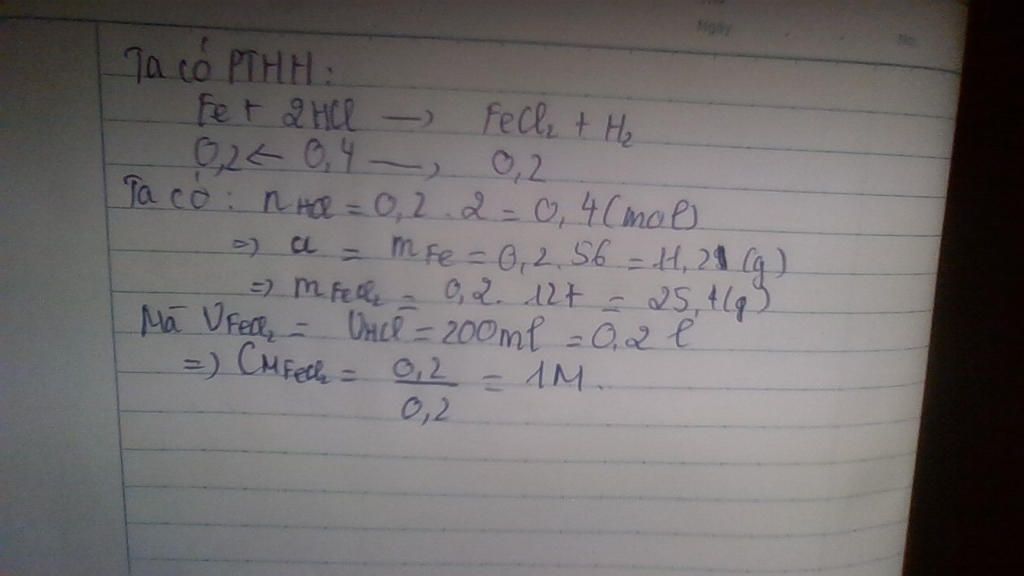 Ngày
No.
Ta có PTHH:
Fe + 2HCl → FeCl₂ + H₂
0,2 ← 0,4 → 0,2
Ta có: nHCl = 0,2 . 2 = 0,4 (mol)
=> a = mFe = 0,2 . 56 = 11,2 (g)
=> mFeCl₂ = 0,2 . 127 = 25,4 (g)
Mà VFeCl₂ = VHCl = 200ml = 0,2 l
=> CMFeCl₂ = 0,2 / 0,2 = 1M.